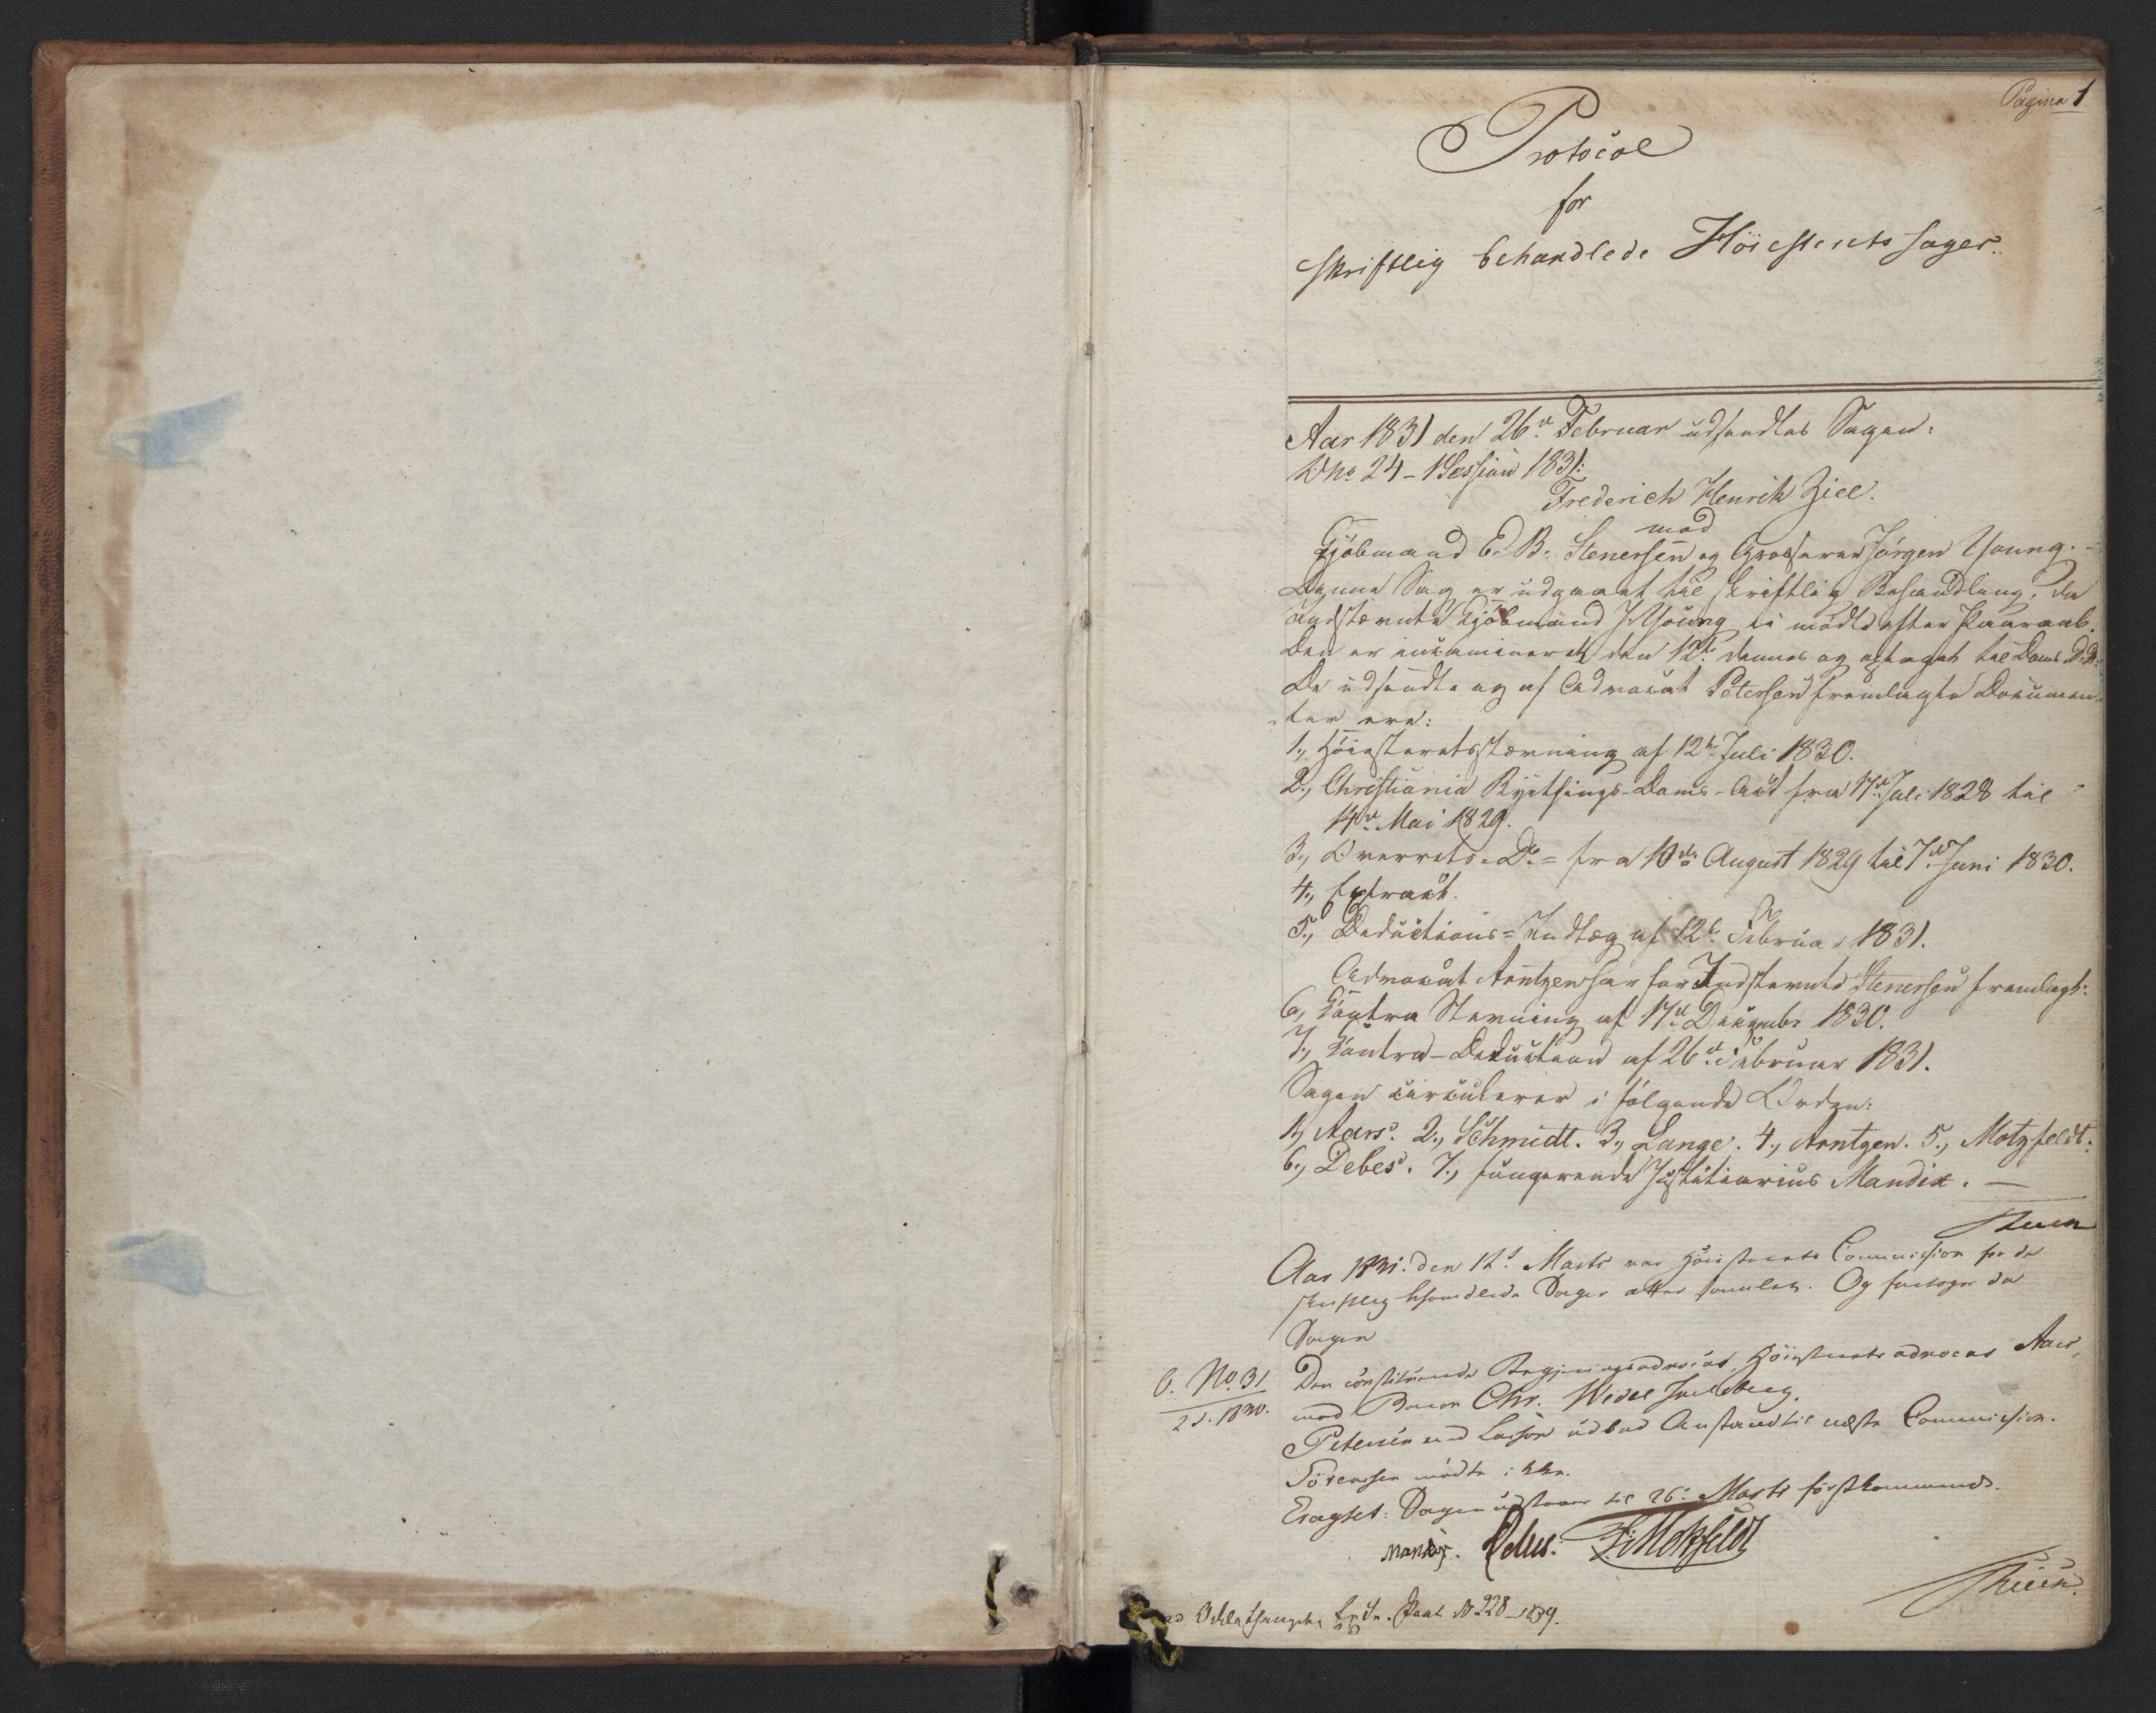 Pagina 1.
Protocol
for
skriftlig behandlede Höiesterets sager.
Aar 1831 den 26de Februar udsendtes Sagen:
No 24 - 1 Session 1831:
Frederich Henrik Ziel.
mod
Kjöbmand E. B. Stenersen og Grosserer Jörgen Young.
Denne Sag er udgaaet til skriftlig Behandling, da
Indstævnte Kjöbmand J. Young ei mödte efter Paaraab.
Den er incamineret den 12te dennes og optaget til Doms D. D.
De udsendte og af Advocat Petersen fremlagte Documen-
ter ere:
1., Höiesteretsstævning af 12te Juli 1830.
2., Christiania Byethings-Doms-Act fra 17de Juli 1828 til
14de Mai 1829.
3., Overrets-Do = fra 10de August 1829 til 7de Juni 1830.
4., Extract.
5., Deductions-Indlæg af 12te Februar 1831.
Advocat Arntzen har for Indstevnte Stenersen fremlagt:
6, Contra Stevning af 17de December 1830.
7., Contra-Deduction af 26de Februar 1831.
Sagen circulerer i fölgende Orden:
1., Aars. 2., Schmidt. 3., Lange. 4., Arntzen. 5., Motzfeldt.
6., Debes. 7., fungerende Justitiarius Mandix. —
Aar 1831. den 12t Marts var Höiesterets Commission for de
skriftlig behandlede Sager atter samlet. Og foretoges da
Sagen
O. No. 31
2 S. 1830.
Den constituerede Regjeringsadvocat, Höiesteretsadvocat Aars,
mod Baron Chr. Wedel Jarlsberg.
Petersen med Lasson udbad Anstand til næste Commission.
Sörenssen mödte ikke.
Eragtet: Sagen udstaaer til 26. Marts förstkommende.
Mandix. Debes. F. Motzfeldt
No 228 - 1839.